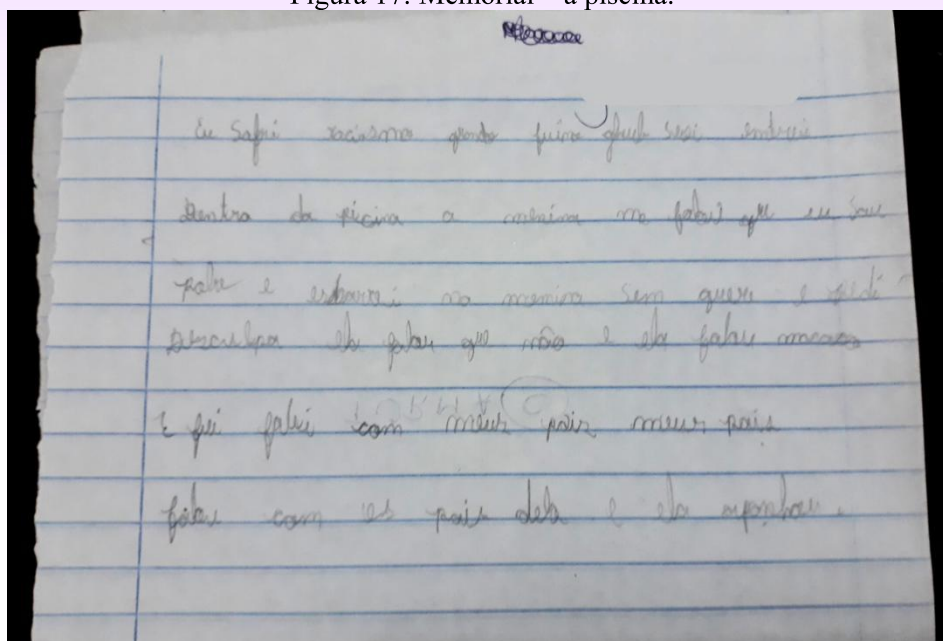 Figura 17: Memorial – a piscina.
Eu Sofri racismo quando fui no sesi
Dentro da picina a menina me falou que eu sou
pobre e esbarrei na menina sem queri e pedi
Desculpa ela falou que não e ela falou macaco
E fui falei com meus pais meus pais
falou com os pais dela e ela apanhou.